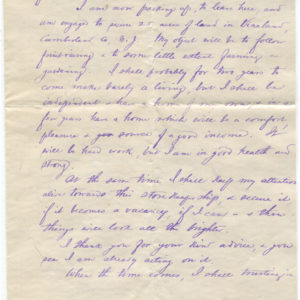 I am now packing up, to leave here, and
am engaged to secure 20 acres of land in Vineland,
Cumberland Co, N.J. My object will be to follow
& to some little extent farming &
gardening. I shall probably for two years to
come make barely a living, but I shall be
independent & have a home of my own & in a
few years have a home which will be a comfort,
pleasure & source of a good income. It
will be hard work, but I am in good health and
strong.
At the same time I shall keep my attention
alive towards this store keep ship, & secure it
if it becomes a vacancy, if I can & then
things will look all the brighter.
I thank you for your kind advice, & you
see I am already acting on it.
When the time comes, I shall trusting in